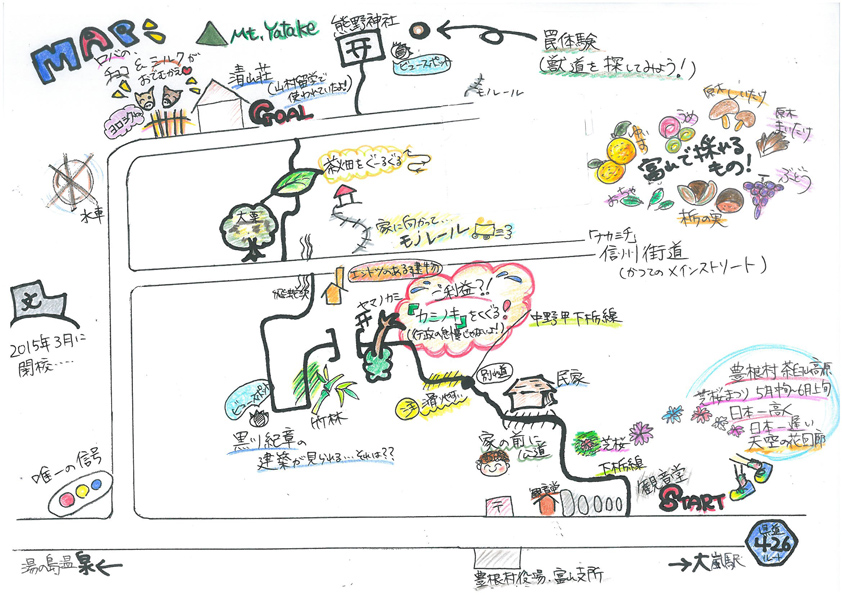 MAP
Mt. Yatake
熊野神社
ビュースポット
罠体験
(獣道を探してみよう!)
ロバの
チョコ
& ミルクが
おでむかえ
ヨロシクね
清山荘
(山村留学で
使われていたよ!)
GOAL
モノレール
原木しいたけ
原木
まいたけ
うめ
ゆず
富山で採れる
もの!
ぶどう
おちゃ
栃の実
水車
茶畑をぐるぐる
大栗
家に向かって…
モノレール
「ナカミチ」
信州街道
(かつてのメインストリート)
エントツのある建物
ヤマノカミ
ご利益?!
『カミノキ』をくぐる!
(行政の怠慢じゃないよ!)
中野甲下栃線
文
2015年3月に
閉校……
竹林
黒川紀章の
建築が見られる…それは??
注 滑りやすい
別れ道
民家
家の前に
公道
芝桜
下栃線
豊根村 茶臼山高原
芝桜まつり 5月中旬~6月上旬
日本一高く
日本一遅い
天空の花回廊
唯一の信号
〒
観音堂
観音堂
START
県道
426
ルート
湯の島温泉←
豊根村役場・富山支所
→大嵐駅